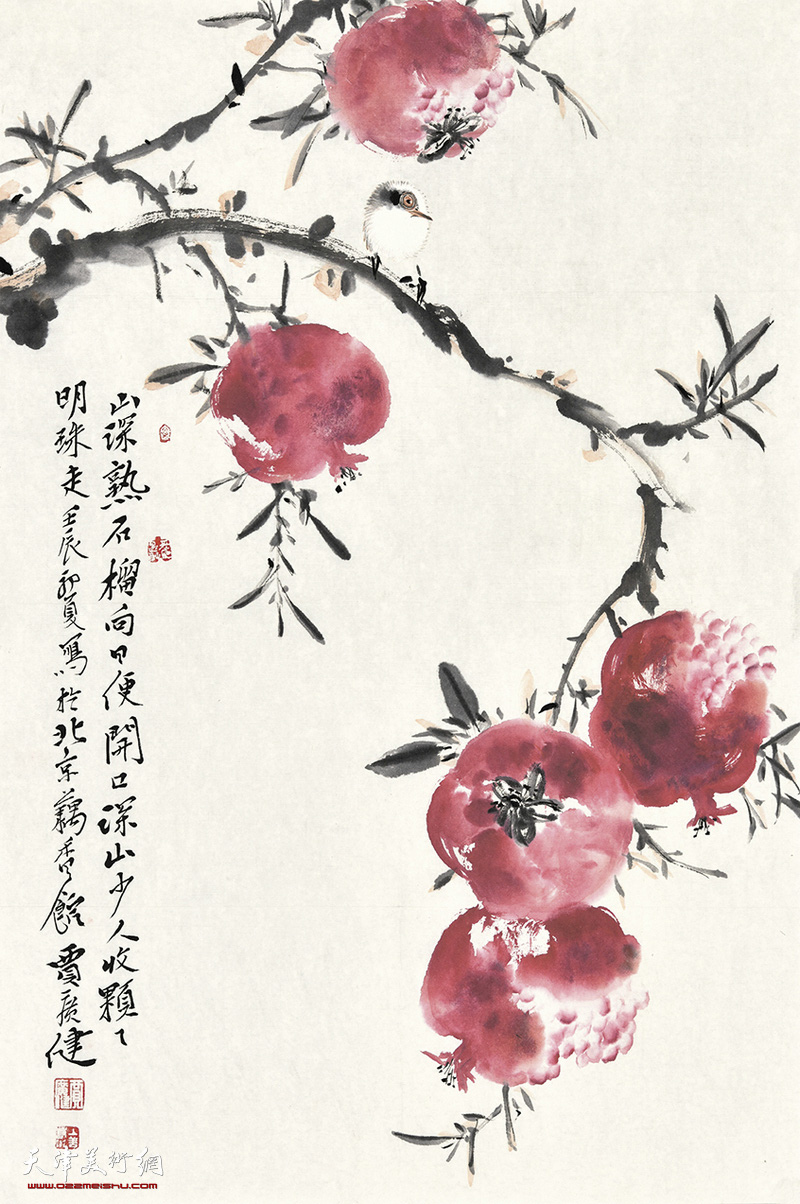 山深熟石榴向日便開口深山少人收顆〻
明珠走壬辰初夏寫於北京藕香館賈廣健
天津美術網
www.022meishu.com